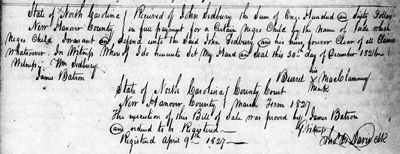 State of North Carolina } Received of John Sedbury the Sum of One Hundred and Sixty Dollars
New Hanover County } in full payment for a Certain Negro Child by the Name of which
Negro Child I warrant and defend unto the Said John Sedbury and his heirs forever Clear of all Claims
Whatsoever. In Witness Whereof I do hereunto Set my Hand and Seal this 30th day of December 1826
Witness, Wm Sedbury
James Batson
Burrel x MacClammy
Mark
State of North Carolina } County Court
New Hanover County } March Term 1827
The execution of this Bill of Sale was proved by James Batson
and ordered to be Registered
Witness
Registered April 9th 1827